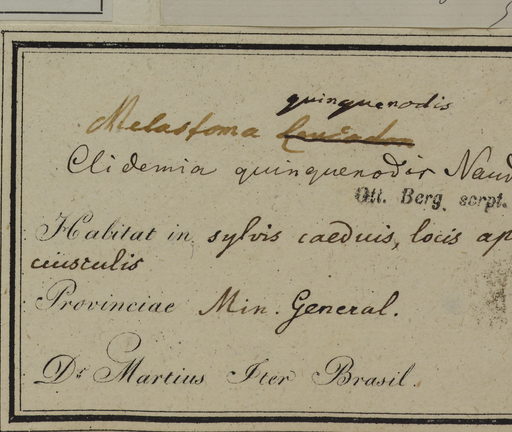 quinquenodis
Melastoma
Clidemia quinquenodis Naud
Ott. Berg. scrpt.
Habitat in sylvis caeduis, locis ap
Provinciae Min. General.
Dr Martius Iter Brasil.